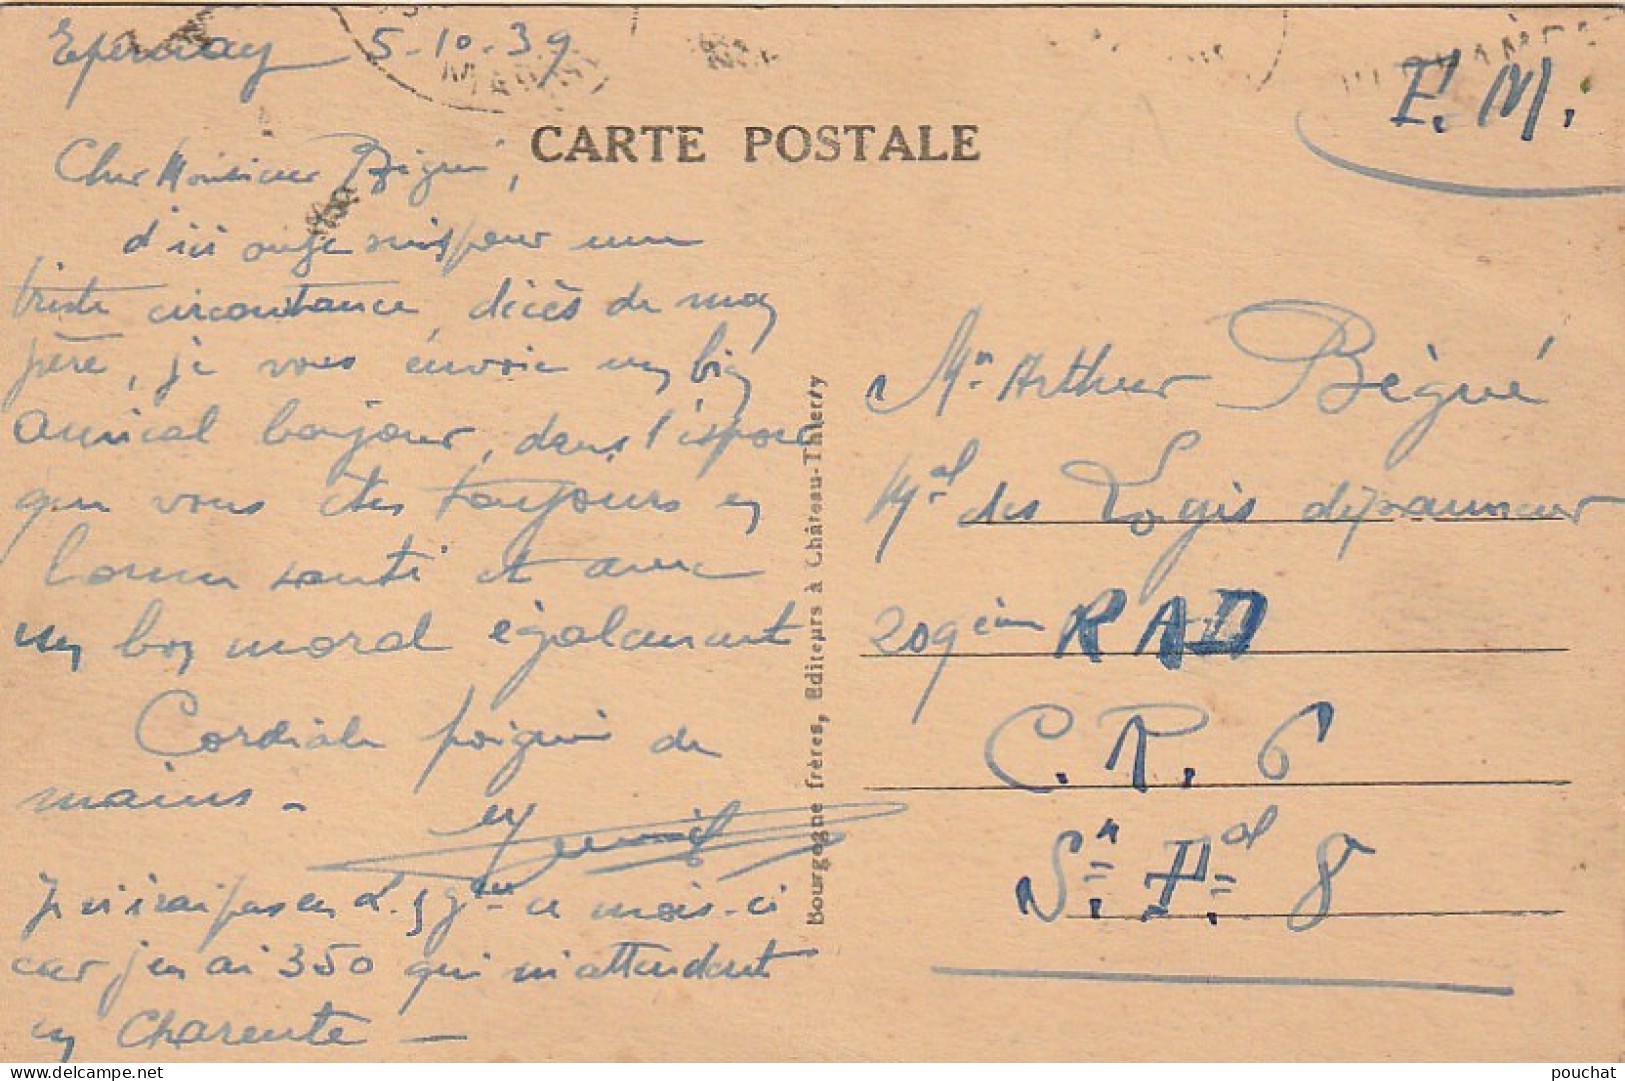 Epernay 5-10-39
F.M.
CARTE POSTALE
Cher Monsieur Bégué,
d'ici où je suis pour une
triste circonstance, décès de mon
père, je vous envoie un bien
amical bonjour, dans l'espoir
que vous êtes toujours en
bonne santé et avec
un bon moral également
Cordiale poignée de
mains -
Je n'irai pas en ce mois-ci
car j'en ai 350 qui m'attendent
en Charente -
Bourgogne frères, Editeurs à Château-Thierry
Mr Arthur Bègué
Mal des Logis dépanneur
209ème RAD
C.R. 6
Sr Pal 8
pouchat
www.delcampe.net